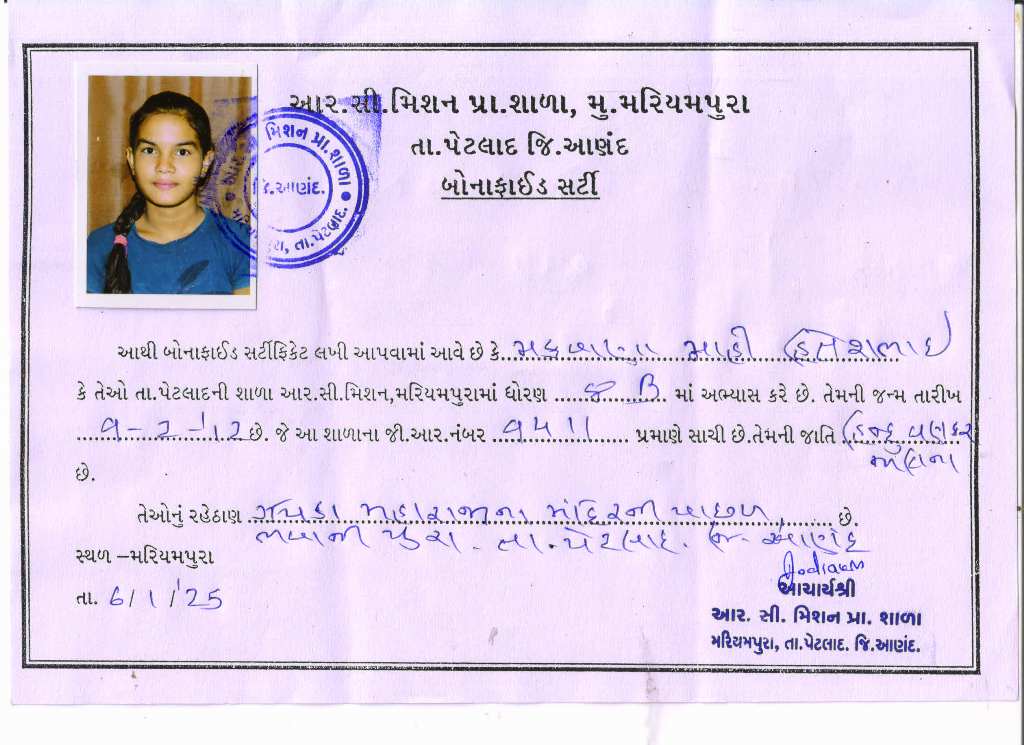 આર.સી.મિશન પ્રા.શાળા, મુ.મરિયમપુરા
તા.પેટલાદ જિ.આણંદ
બોનાફાઈડ સર્ટી
મિશન પ્રા.શાળા
જિ.આણંદ.
તા.પેટલાદ.
આથી બોનાફાઈડ સર્ટીફિકેટ લખી આપવામાં આવે છે કે મકવાણા માહી હિતેશભાઈ
કે તેઓ તા.પેટલાદની શાળા આર.સી.મિશન,મરિયમપુરામાં ધોરણ B માં અભ્યાસ કરે છે. તેમની જન્મ તારીખ
૧-૨-'૧૨ છે. જે આ શાળાના જી.આર.નંબર ૧૫૧૧ પ્રમાણે સાચી છે.તેમની જાતિ હિન્દુ વણકર
છે.
તેઓનું રહેઠાણ મહારાજના મંદિરની પાછળ, છે.
પુરા. તા.પેટલાદ. જિ. આણંદ
સ્થળ –મરિયમપુરા
તા. 6/1/'25
આચાર્યશ્રી
આર. સી. મિશન પ્રા. શાળા
મરિયમપુરા, તા.પેટલાદ. જિ.આણંદ.